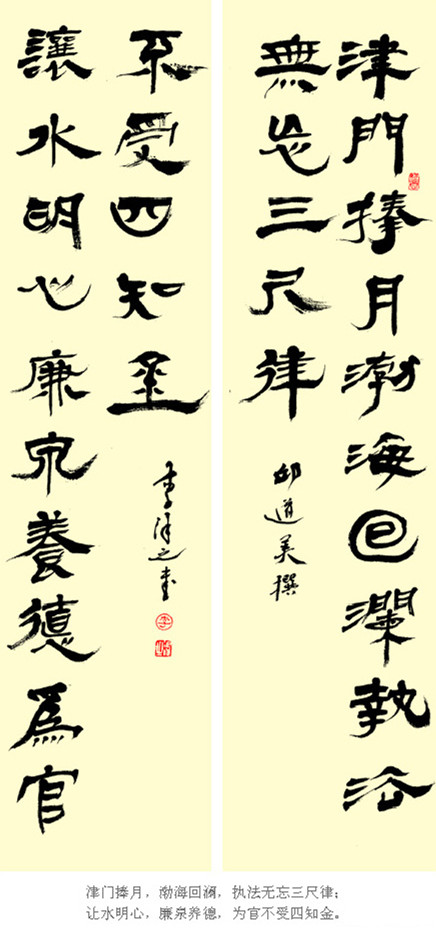 津門捧月渤海回瀾執法
無忘三尺律
邱道美撰
讓水明心廉泉養德爲官
不受四知金
津门捧月，渤海回澜，执法无忘三尺律；
让水明心，廉泉养德，为官不受四知金。